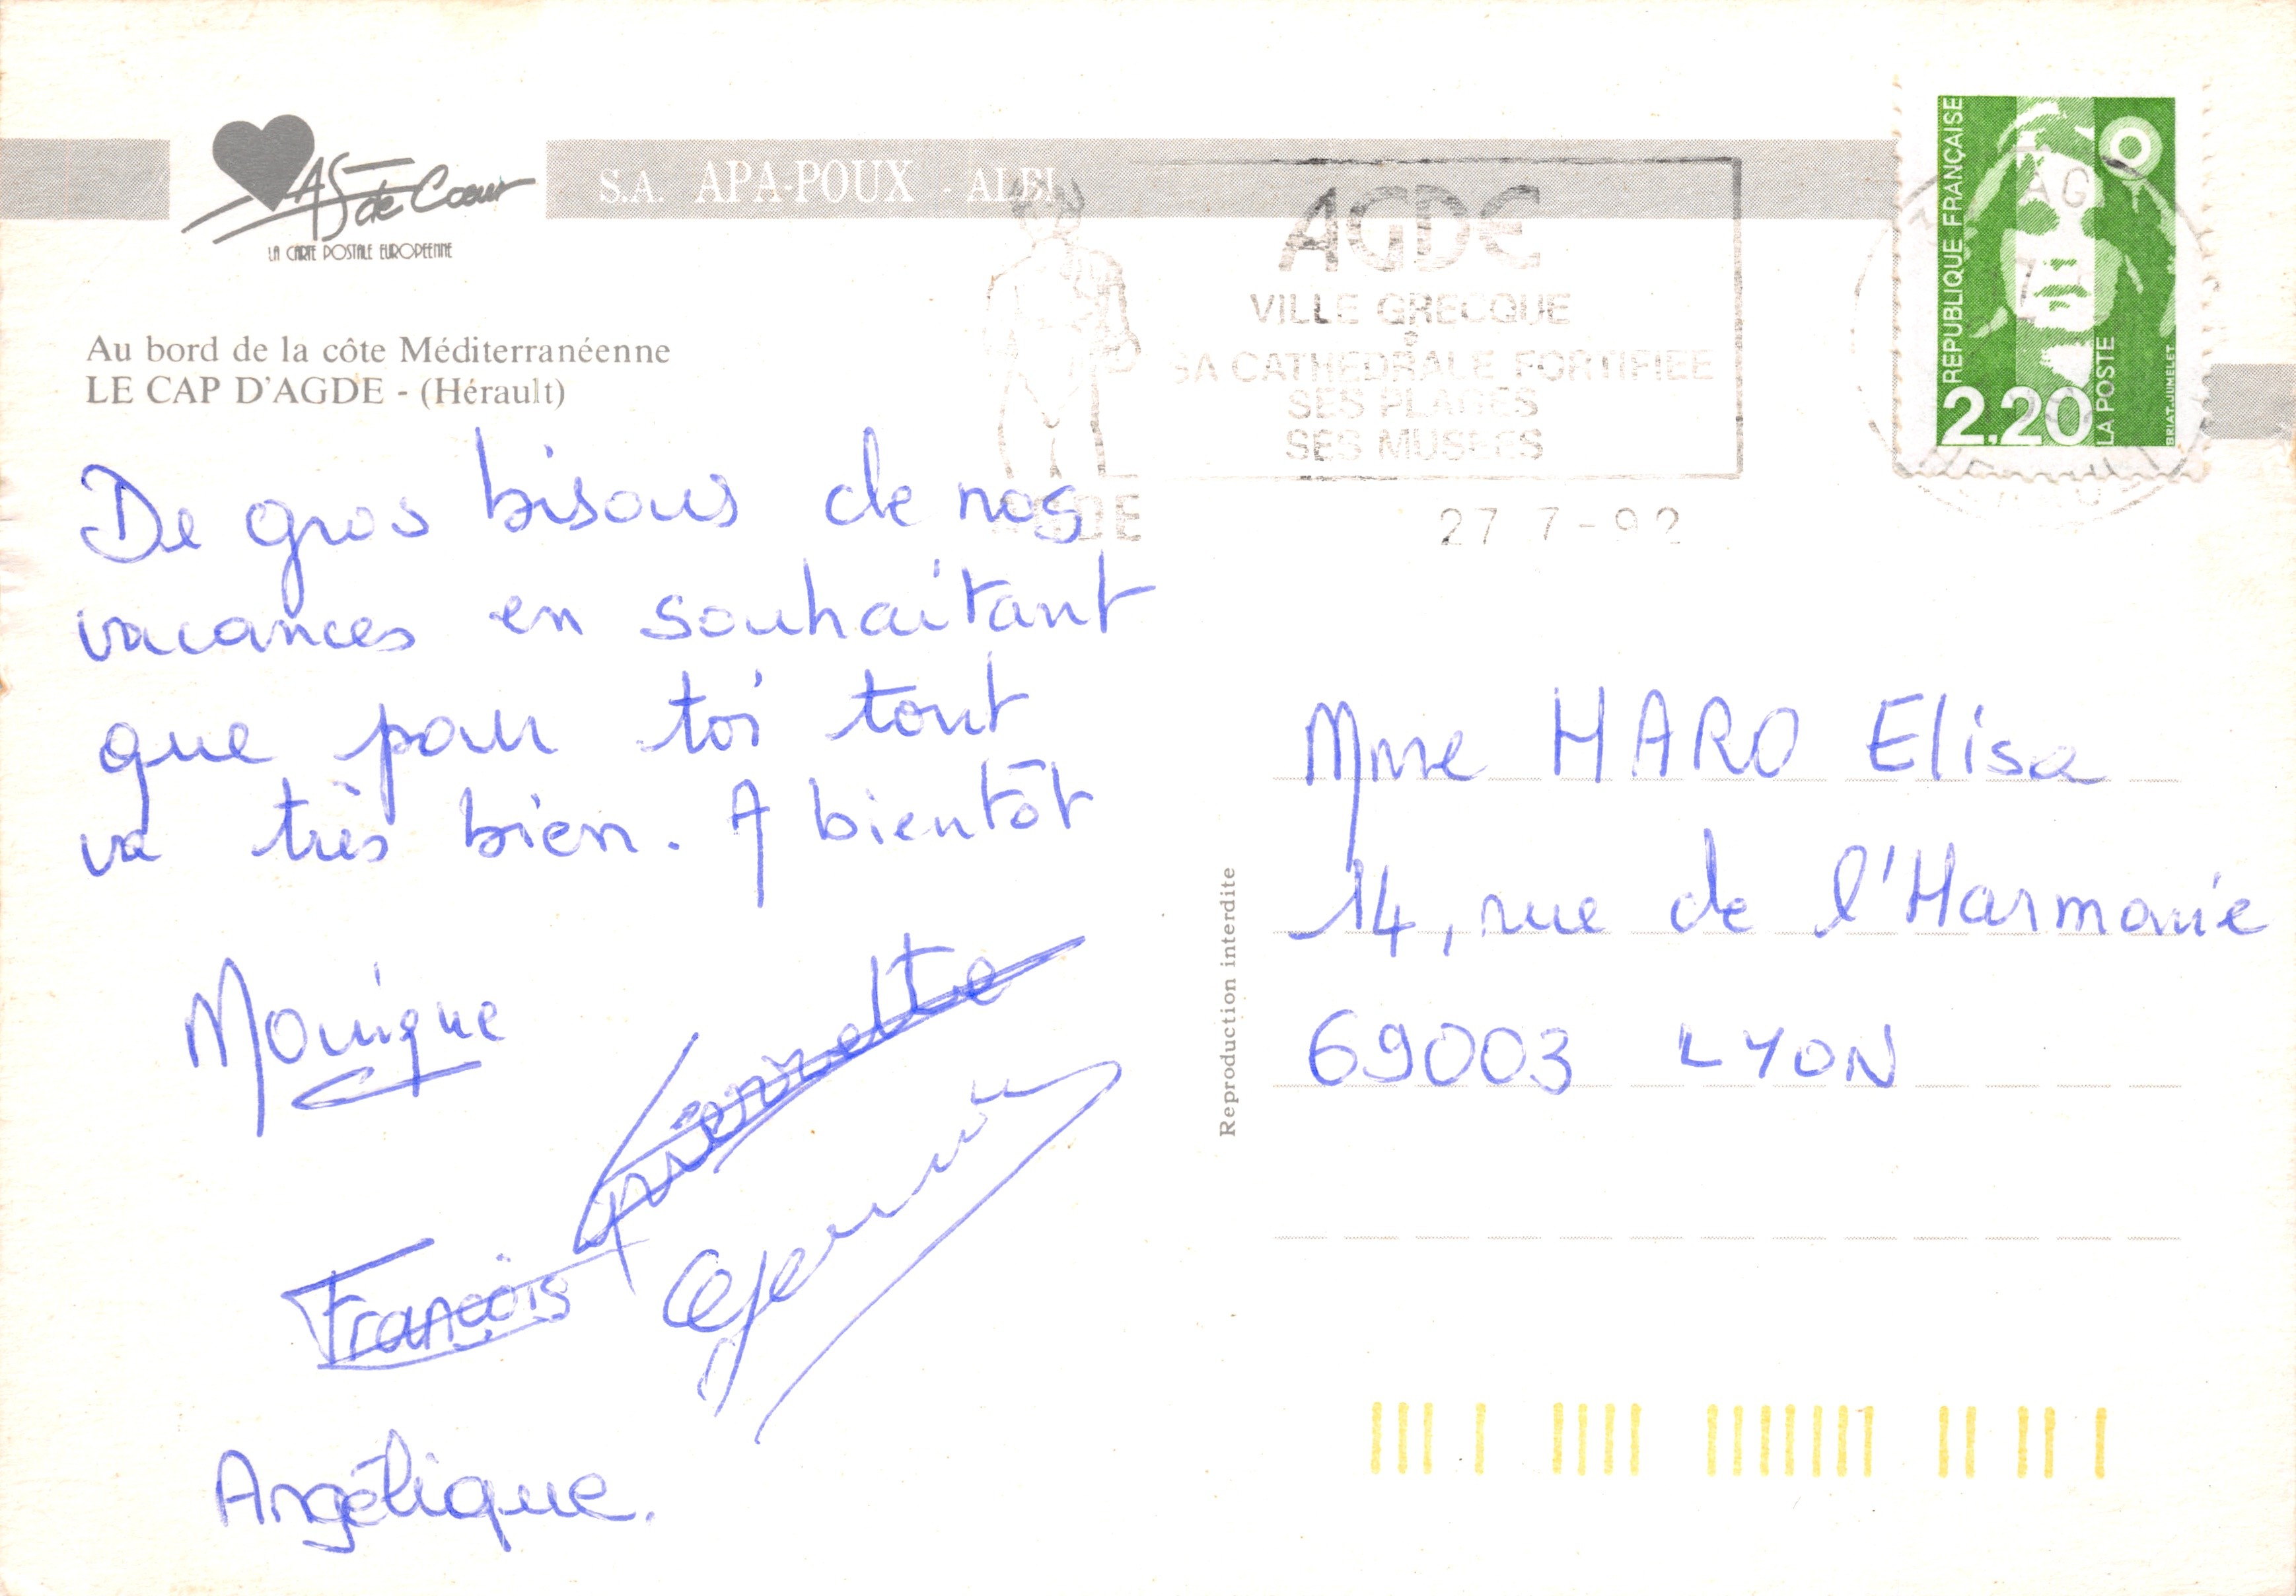 As de Cœur
LA CARTE POSTALE EUROPEENNE
S.A. APA-POUX - ALBI
Au bord de la côte Méditerranéenne
LE CAP D'AGDE - (Hérault)
AGDE
AGDE
VILLE GRECQUE
SA CATHEDRALE FORTIFIEE
SES PLAGES
SES MUSEES
27 7-92
AG
REPUBLIQUE FRANÇAISE
2,20
LA POSTE
BRIAT.JUMELET
De gros bisous de nos
vacances en souhaitant
que pour toi tout
va très bien. A bientôt
Monique
François
Angélique.
Reproduction interdite
Mme HARO Elisa
14, rue de l'Harmonie
69003 LYON